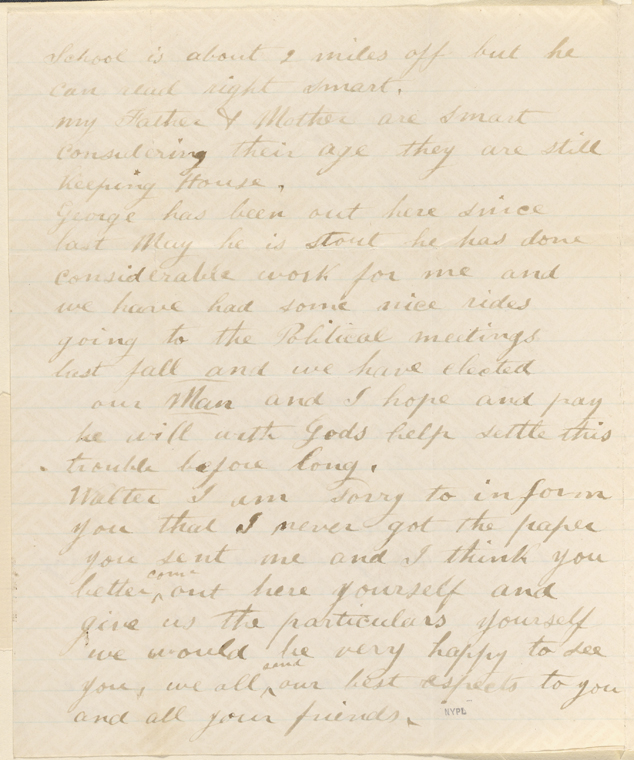 School is about 2 miles off but he
can read right smart.
my Father & Mother are smart
considering their age they are still
keeping House.
George has been out here since
last May he is stout he has done
considerable work for me and
we have had some nice rides
going to the Political meetings
last fall and we have elected
our Man and I hope and pray
he will with Gods help settle this
trouble before long.
Walter I am sorry to inform
you that I never got the paper
you sent me and I think you
better come out here yourself and
give us the particulars yourself
we would be very happy to see
you, we all send our best respects to you
and all your friends.
NYPL